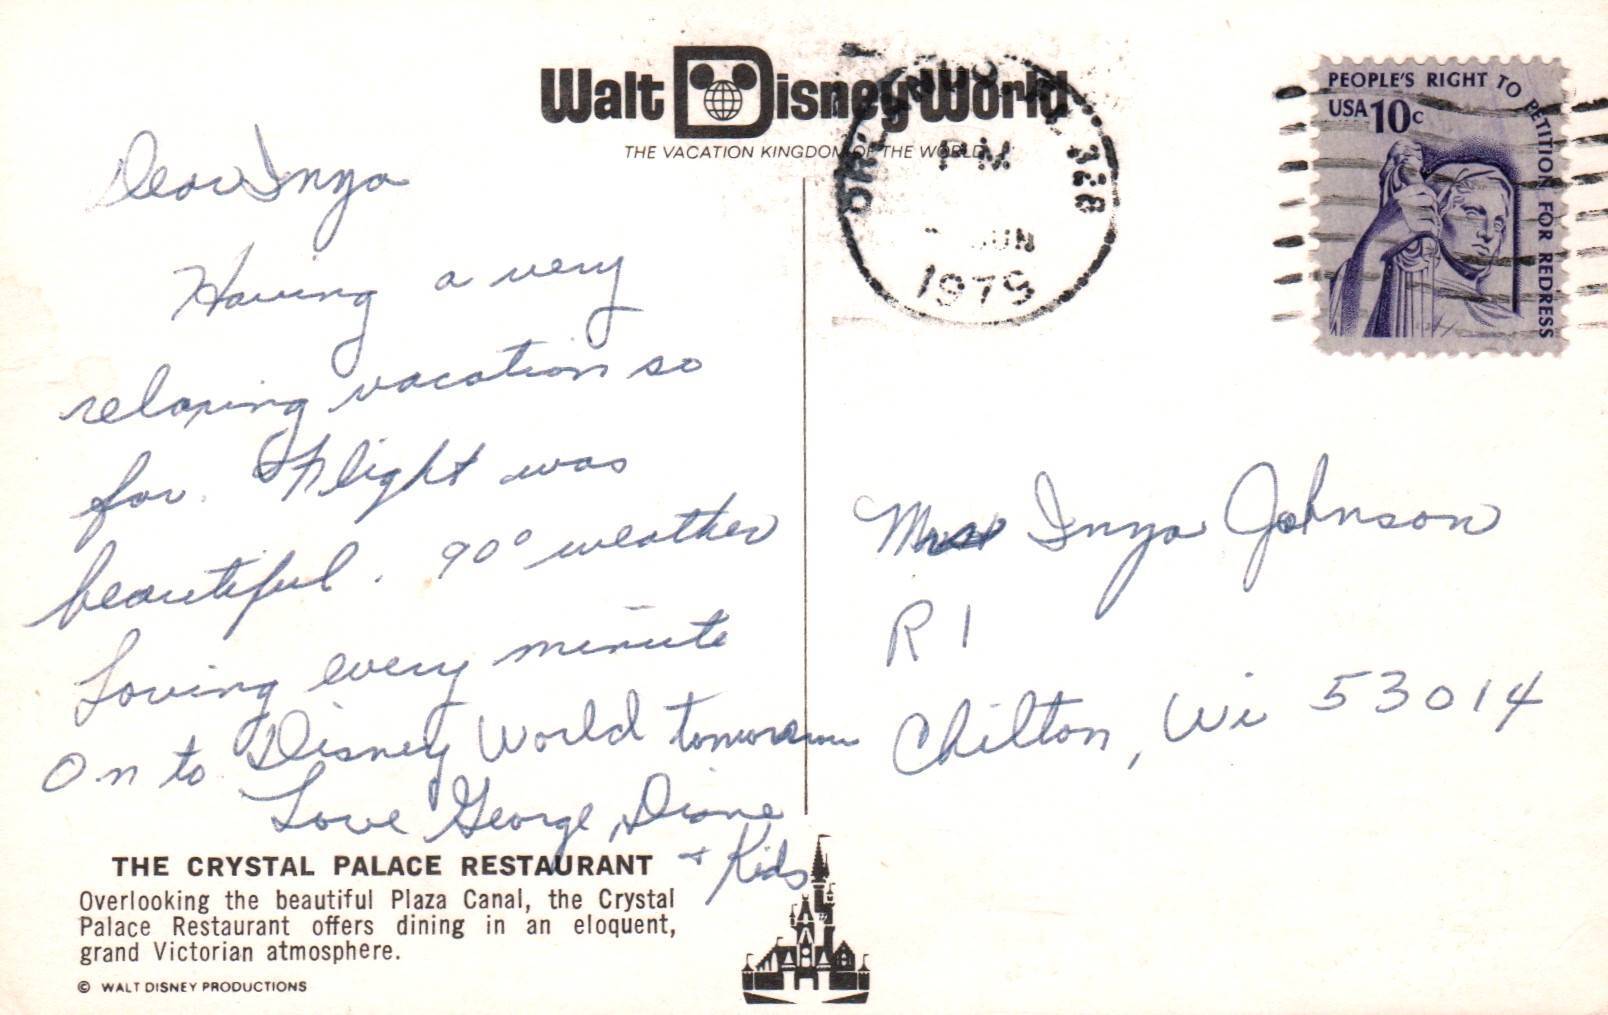 Walt Disney World
THE VACATION KINGDOM OF THE WORLD
Dear Inga
Having a very
relaxing vacation so
far. Flight was
beautiful. 90° weather
Loving every minute
On to Disney World tomorrow
Love George, Diane
+ Kids
THE CRYSTAL PALACE RESTAURANT
Overlooking the beautiful Plaza Canal, the Crystal
Palace Restaurant offers dining in an eloquent,
grand Victorian atmosphere.
© WALT DISNEY PRODUCTIONS
ORLANDO, FL 328
PM
JUN
1979
PEOPLE'S RIGHT TO PETITION FOR REDRESS
USA 10c
Mrs Inga Johnson
R 1
Chilton, Wi 53014